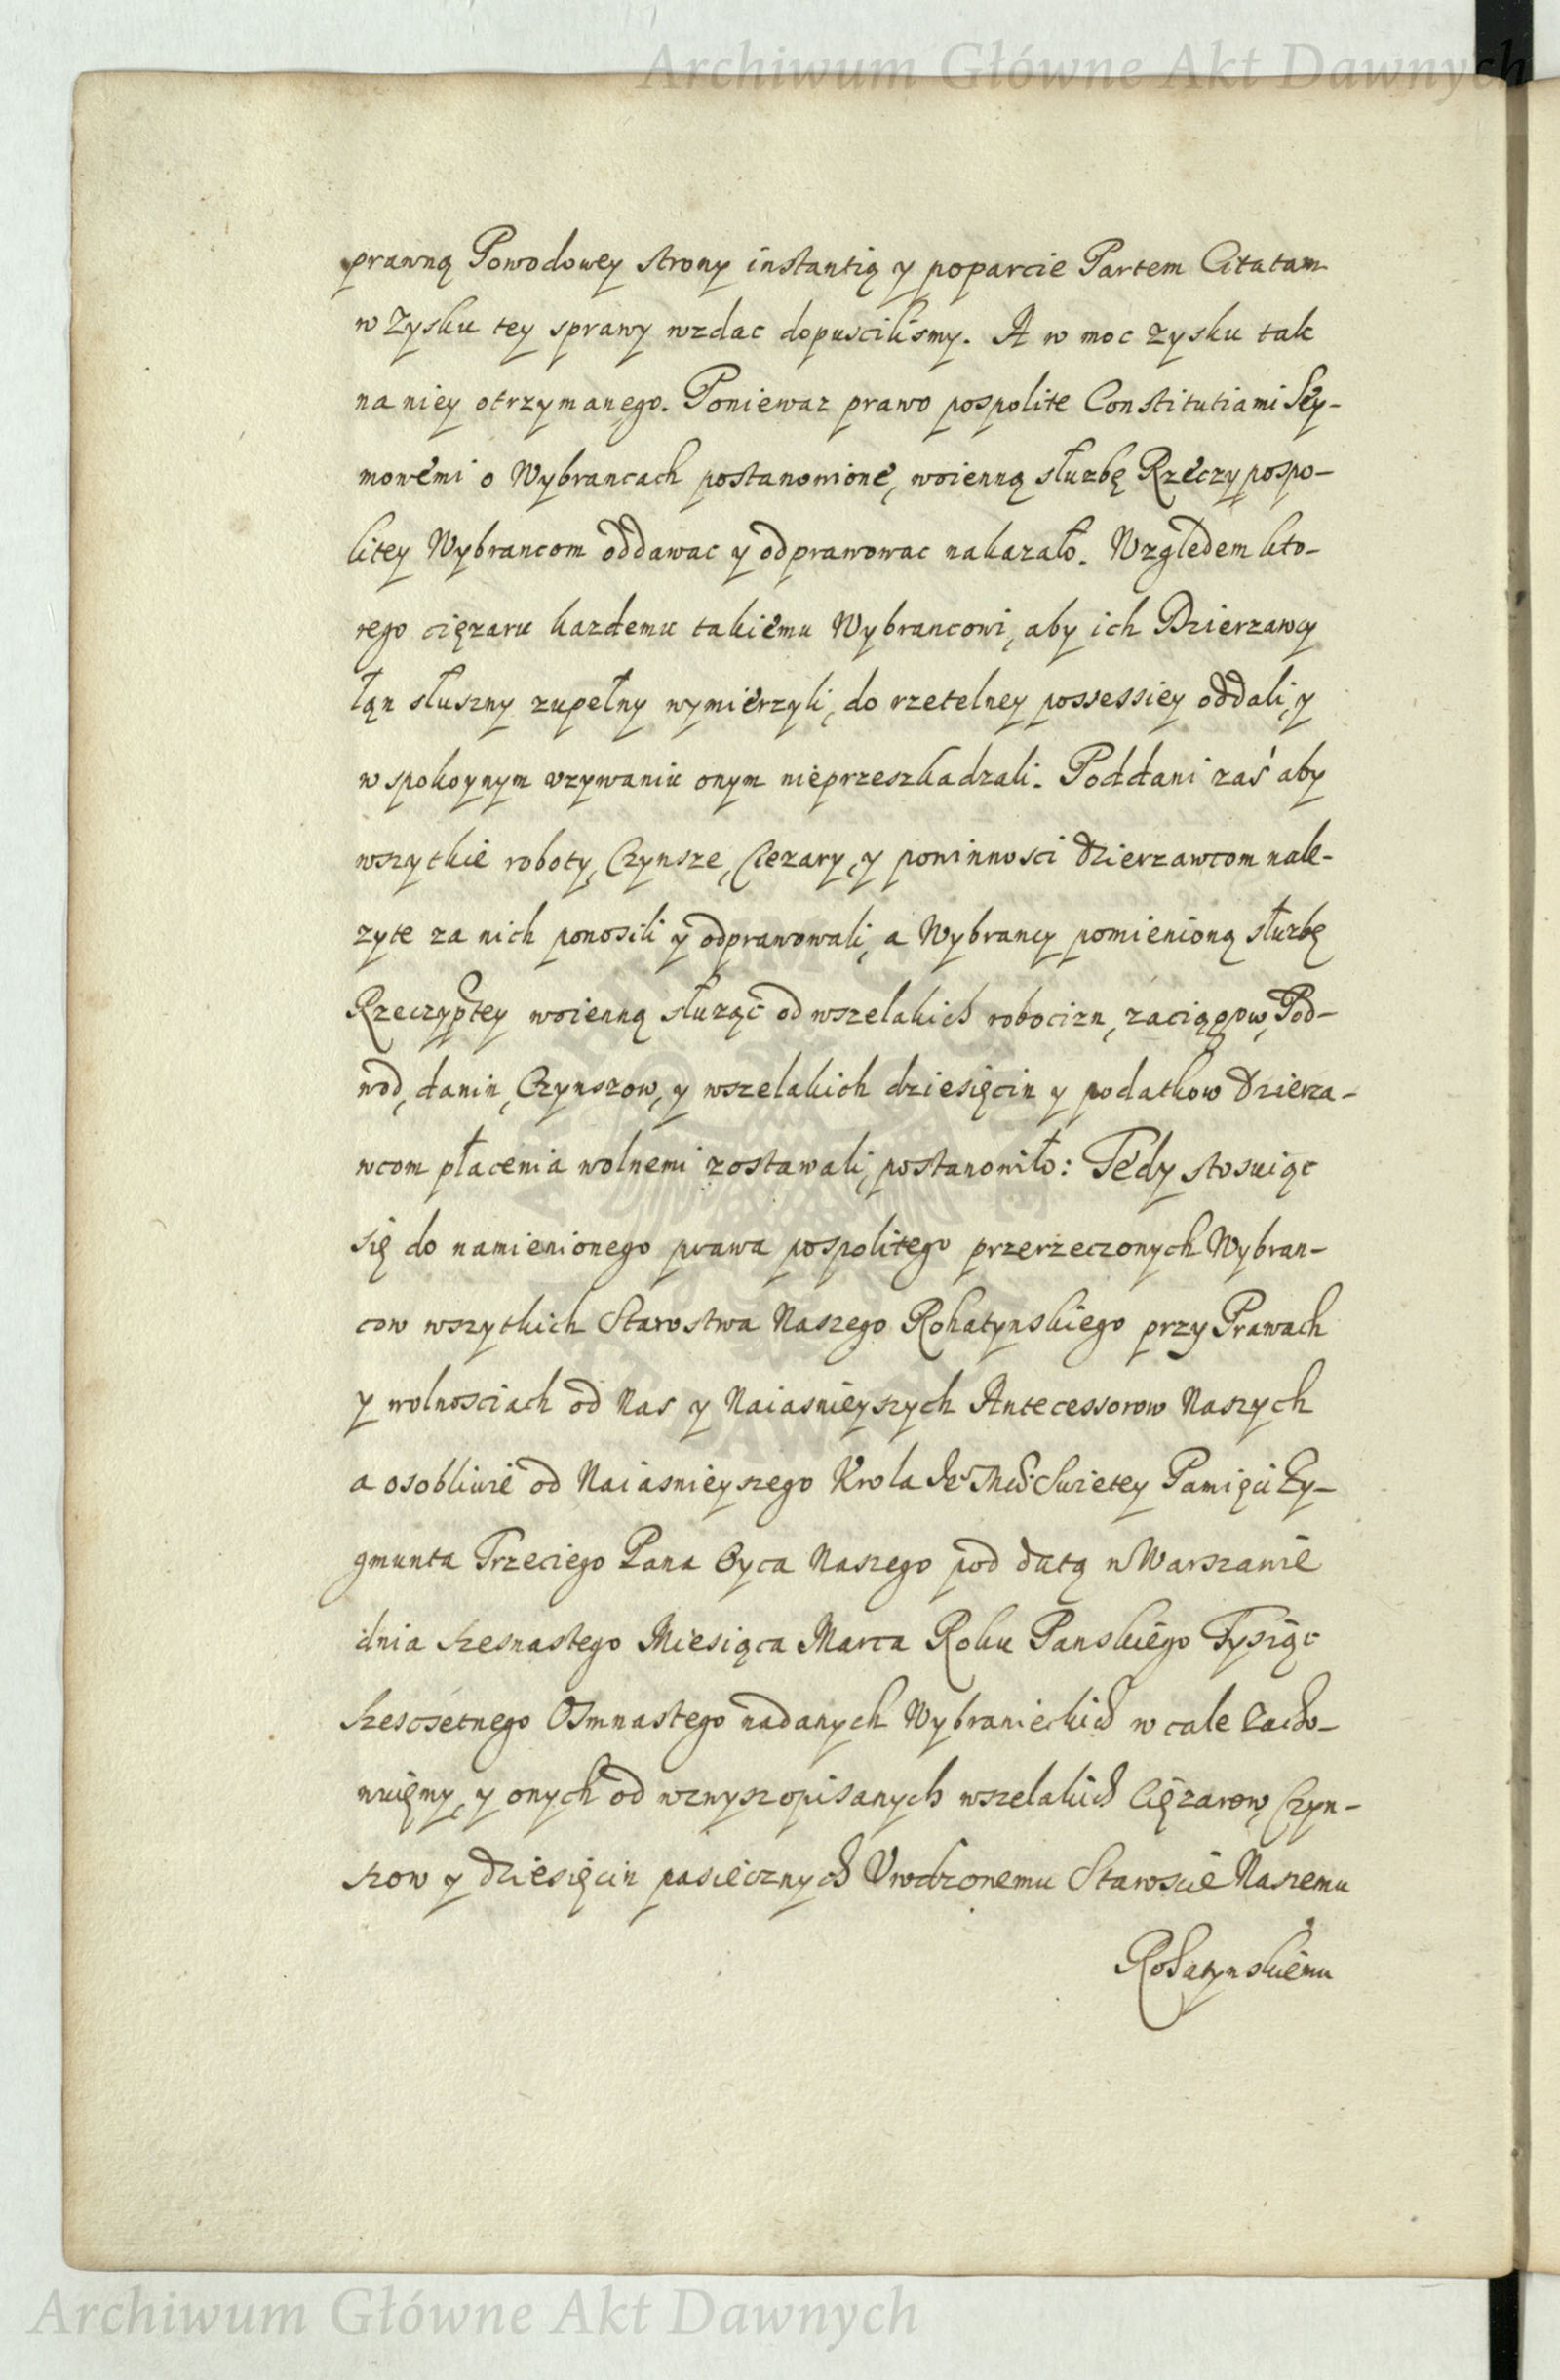 Archiwum Główne Akt Dawnych
prawną Powodowey strony instantią y poparcie Partem Citatam
w Zysku tey sprawy wzdac dopuscilismy. A w moc zysku tak
na niey otrzymanego. Poniewaz prawo pospolite Constitutiami Sey-
mowemi o Wybrancach postanowione, woienną słuzbę Rzeczypospo-
litey Wybrancom oddawac y odprawowac nakazało. Względem kto-
rego cięzaru kazdemu takiemu Wybrancowi, aby ich Dzierzawcy
łąn słuszny zupełny wymierzyli, do rzetelney possessiey oddali, y
w spokoynym vzywaniu onym nieprzeszkadzali. Poddani zaś aby
wszytkie roboty, Czynsze, Ciezary, y powinnosci dzierzawcom nale-
zyte za nich ponosili y odprawowali, a Wybrancy pomienioną słuzbę
Rzeczyptey woienną słuząc od wszelakich robocizn, zaciągow, Pod-
wod, danin, Czynszow, y wszelakich dziesięcin y podatkow dzierza-
wcom płacenia wolnemi zostawali, postanowiło: Tedy stosuiąc
się do namienionego prawa pospolitego przerzeczonych Wybran-
cow wszytkich Starostwa Naszego Rohatynskiego przy Prawach
y wolnosciach od Nas y Naiasnieyszych Antecessorow Naszych
a osobliwie od Naiasnieyszego Krola Je° Mci Swietey Pamięci Zy-
gmunta Trzeciego Pana Oyca Naszego pod datą w Warszawie
dnia szesnastego Miesiąca Marca Roku Panskiego Tysiąc
szescsetnego Osmnastego nadanych Wybranieckich w cale zacho-
wuięmy, y onych od wzwyszopisanych wszelakich Cięzarow, Czyn-
szow y dziesięcin pasiecznych Vrodzonemu Staroscie Naszemu
Rohatynskiemu
Archiwum Główne Akt Dawnych